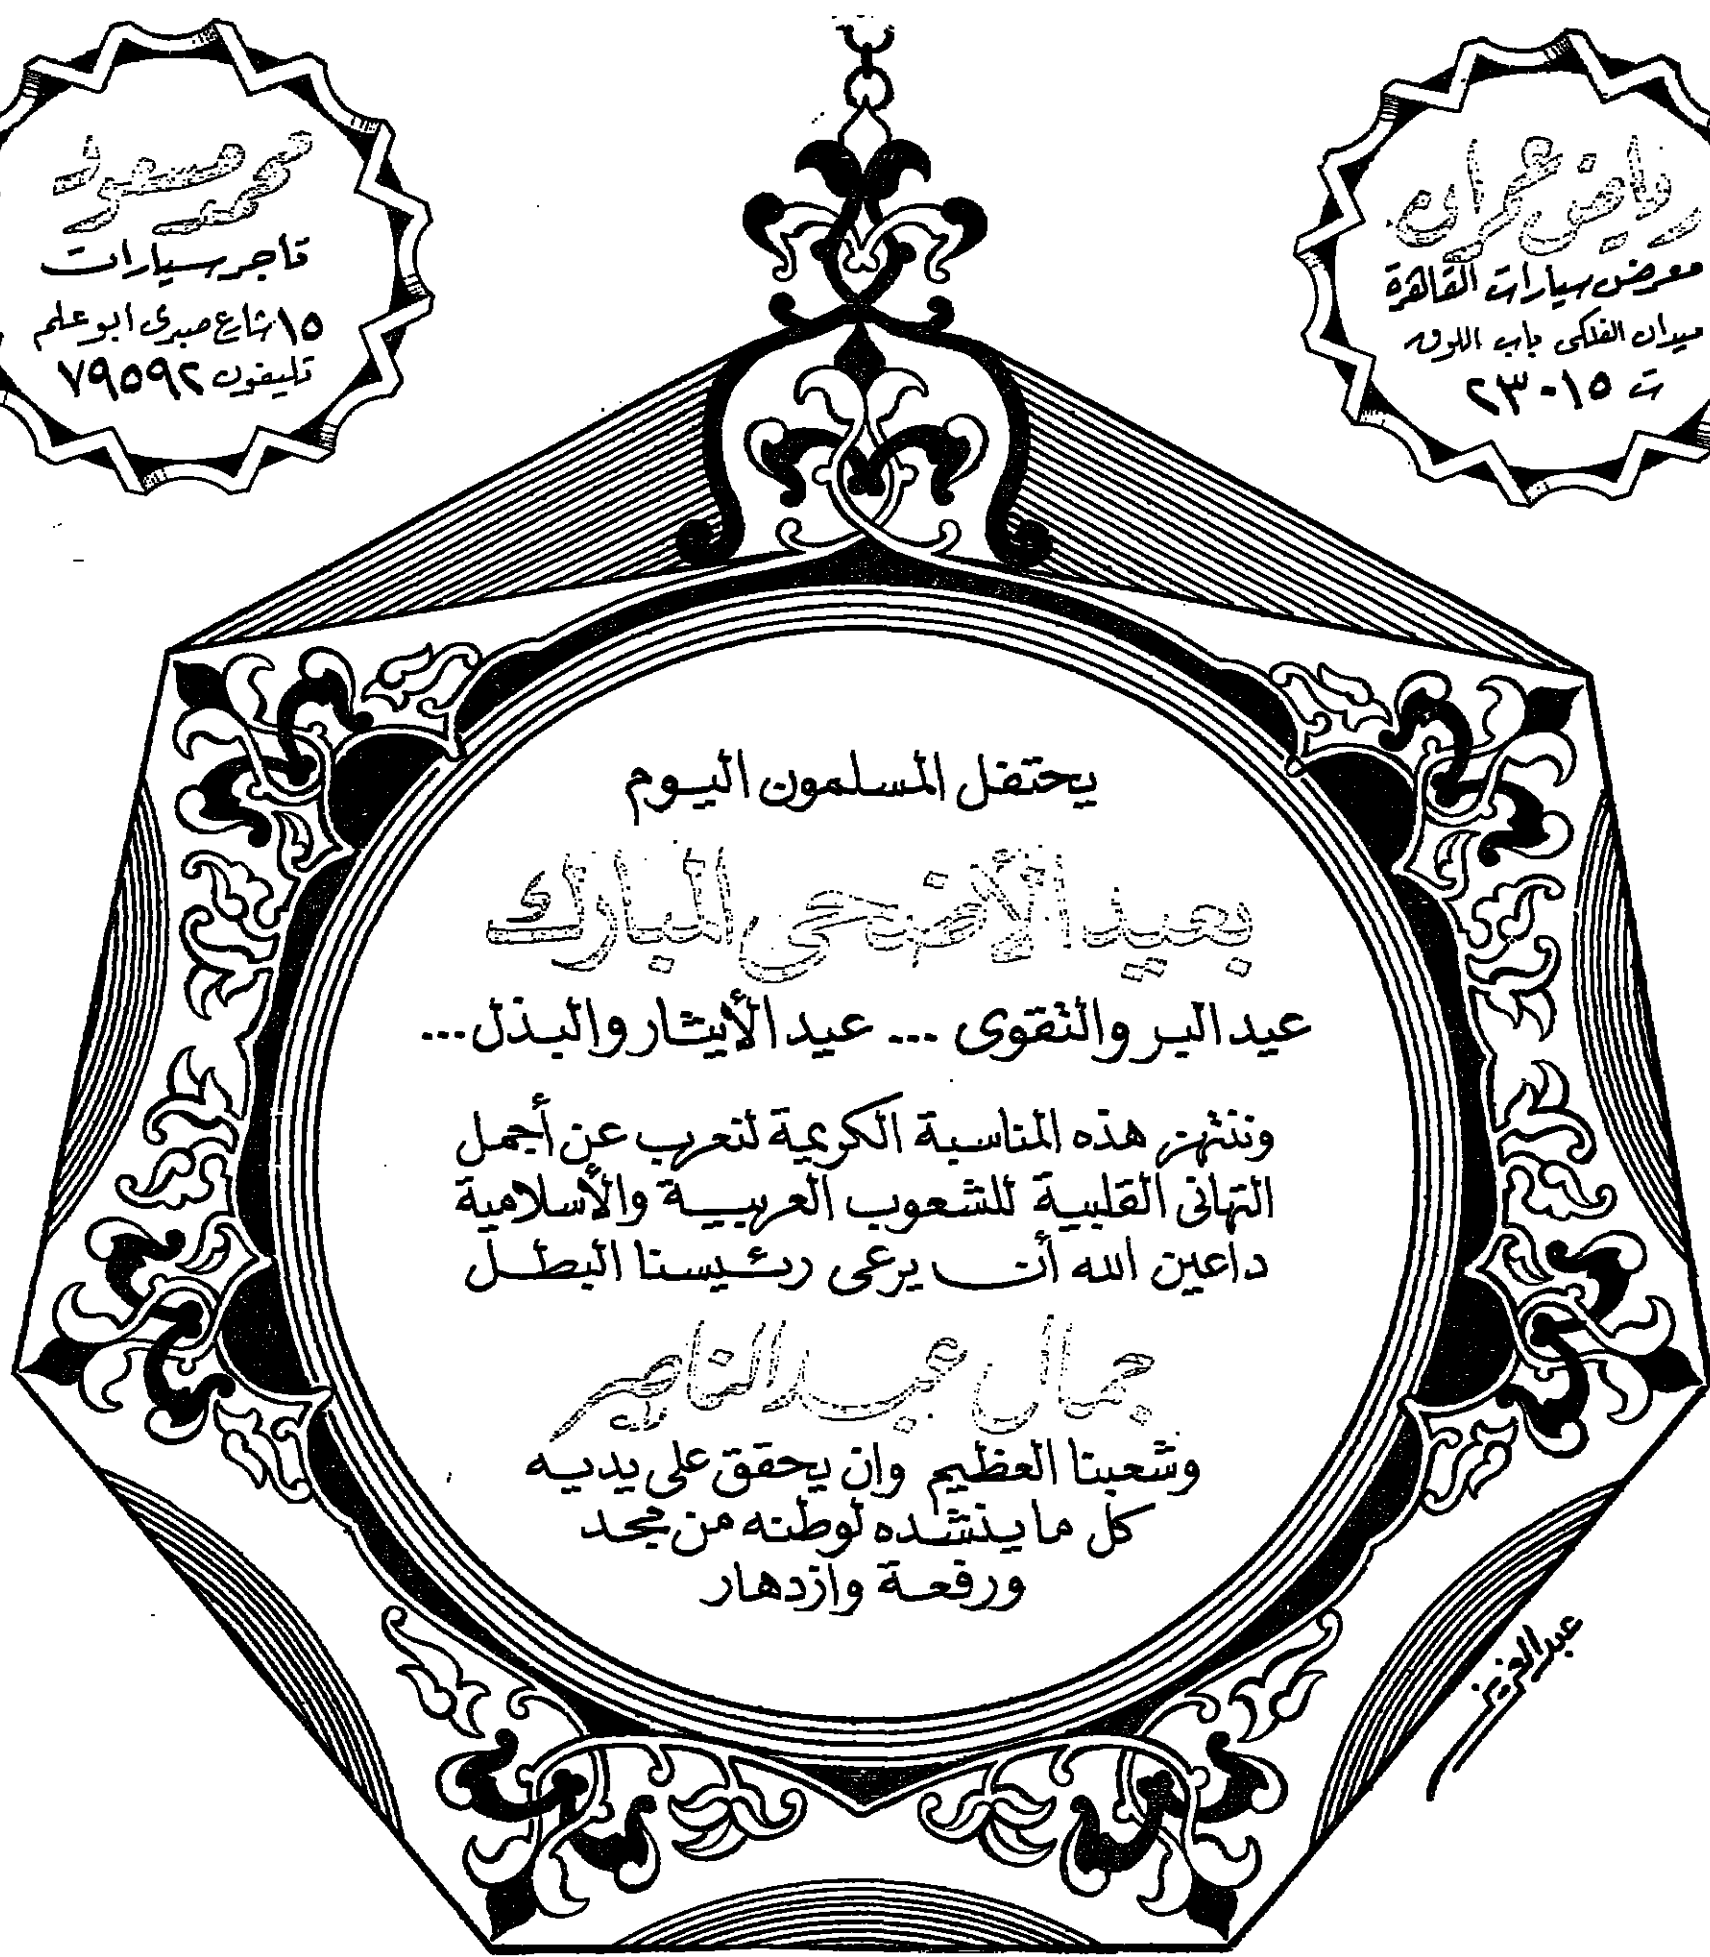 رياض عمران
معرض سيارات القاهرة
ميدان الفلكى باب اللوق
ت ٢٣٠١٥
محمد مسعود
تاجر سيارات
١٥ شارع صبرى ابو علم
تليفون ٧٩٥٩٢
يحتفل المسلمون اليوم
بعيد الأضحى المبارك
عيد البر والتقوى ... عيد الأيثار والبذل ...
وننتهز هذه المناسبة الكريمة لنعرب عن أجمل
التهانى القلبية للشعوب العربية والأسلامية
داعين الله أن يرعى رئيسنا البطل
جمال عبد الناصر
وشعبنا العظيم وان يحقق على يديه
كل ما ينشده لوطنه من مجد
ورفعة وازدهار
عبد العزيز